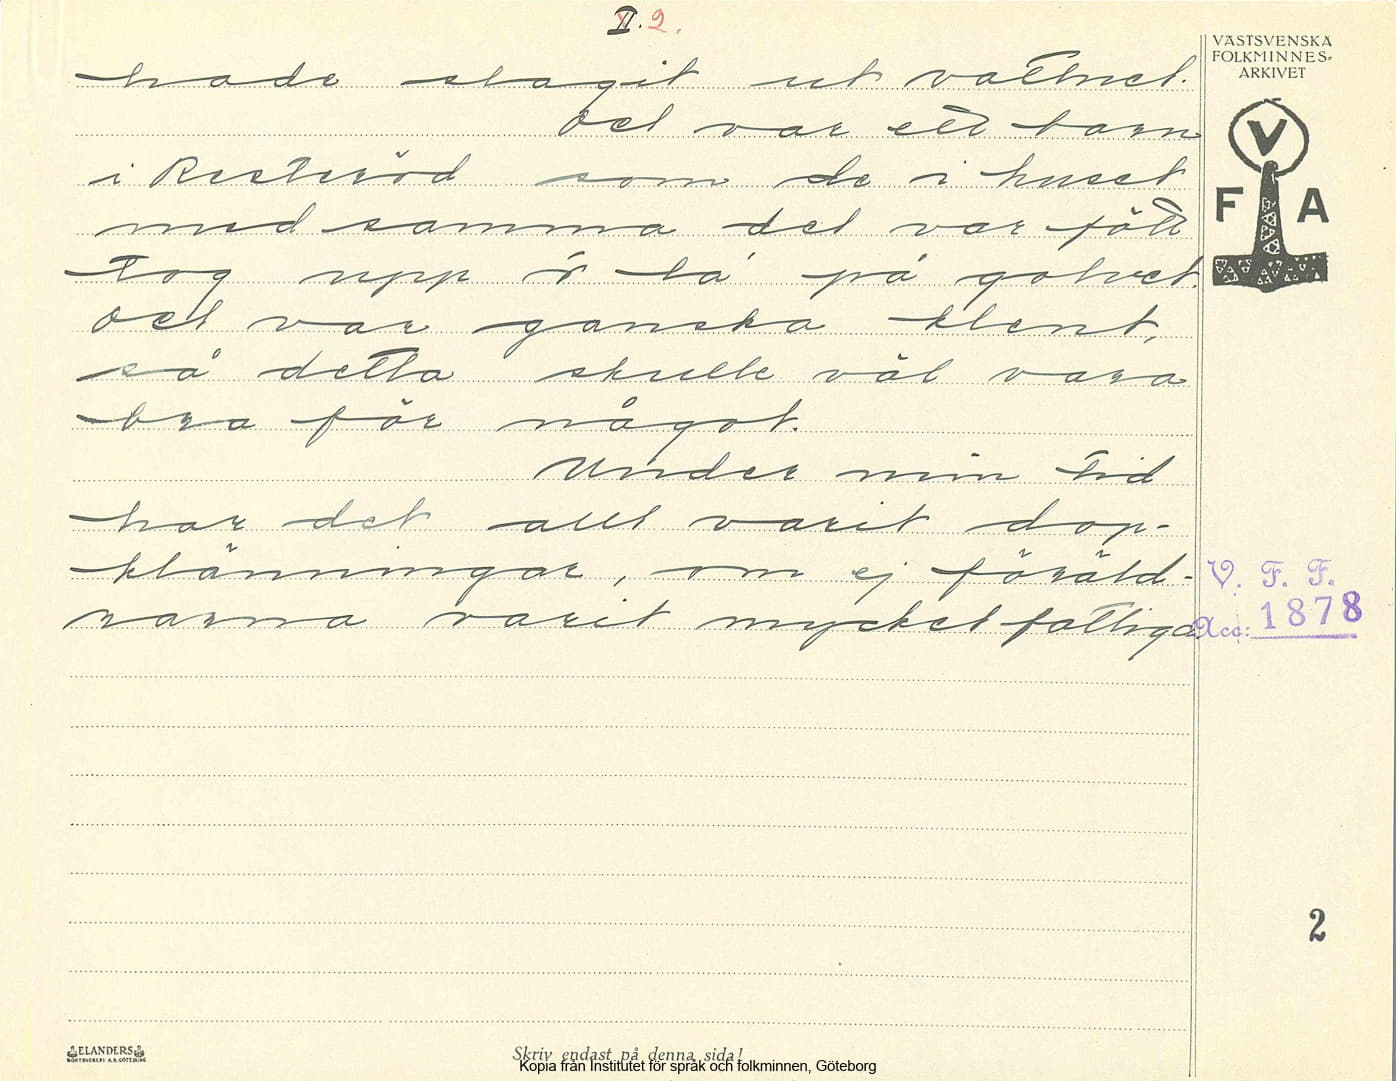 II. 2.
VÄSTSVENSKA
FOLKMINNES-
ARKIVET
hade slagit ut vattnet.
Det var ett barn
i Resteröd som de i huset
med samma det var fött
tog upp å la' på golvet.
Det var ganska klent,
så detta skulle väl vara
bra för något.
Under min tid
har det allt varit dop-
klänningar, om ej föräld-
rarna varit mycket fattiga.
V
F A
V. F. F.
Acc: 1878
2
ELANDERS
BOKTRYCKERI A.B. GÖTEBORG
Skriv endast på denna sida!
Kopia från Institutet för språk och folkminnen, Göteborg